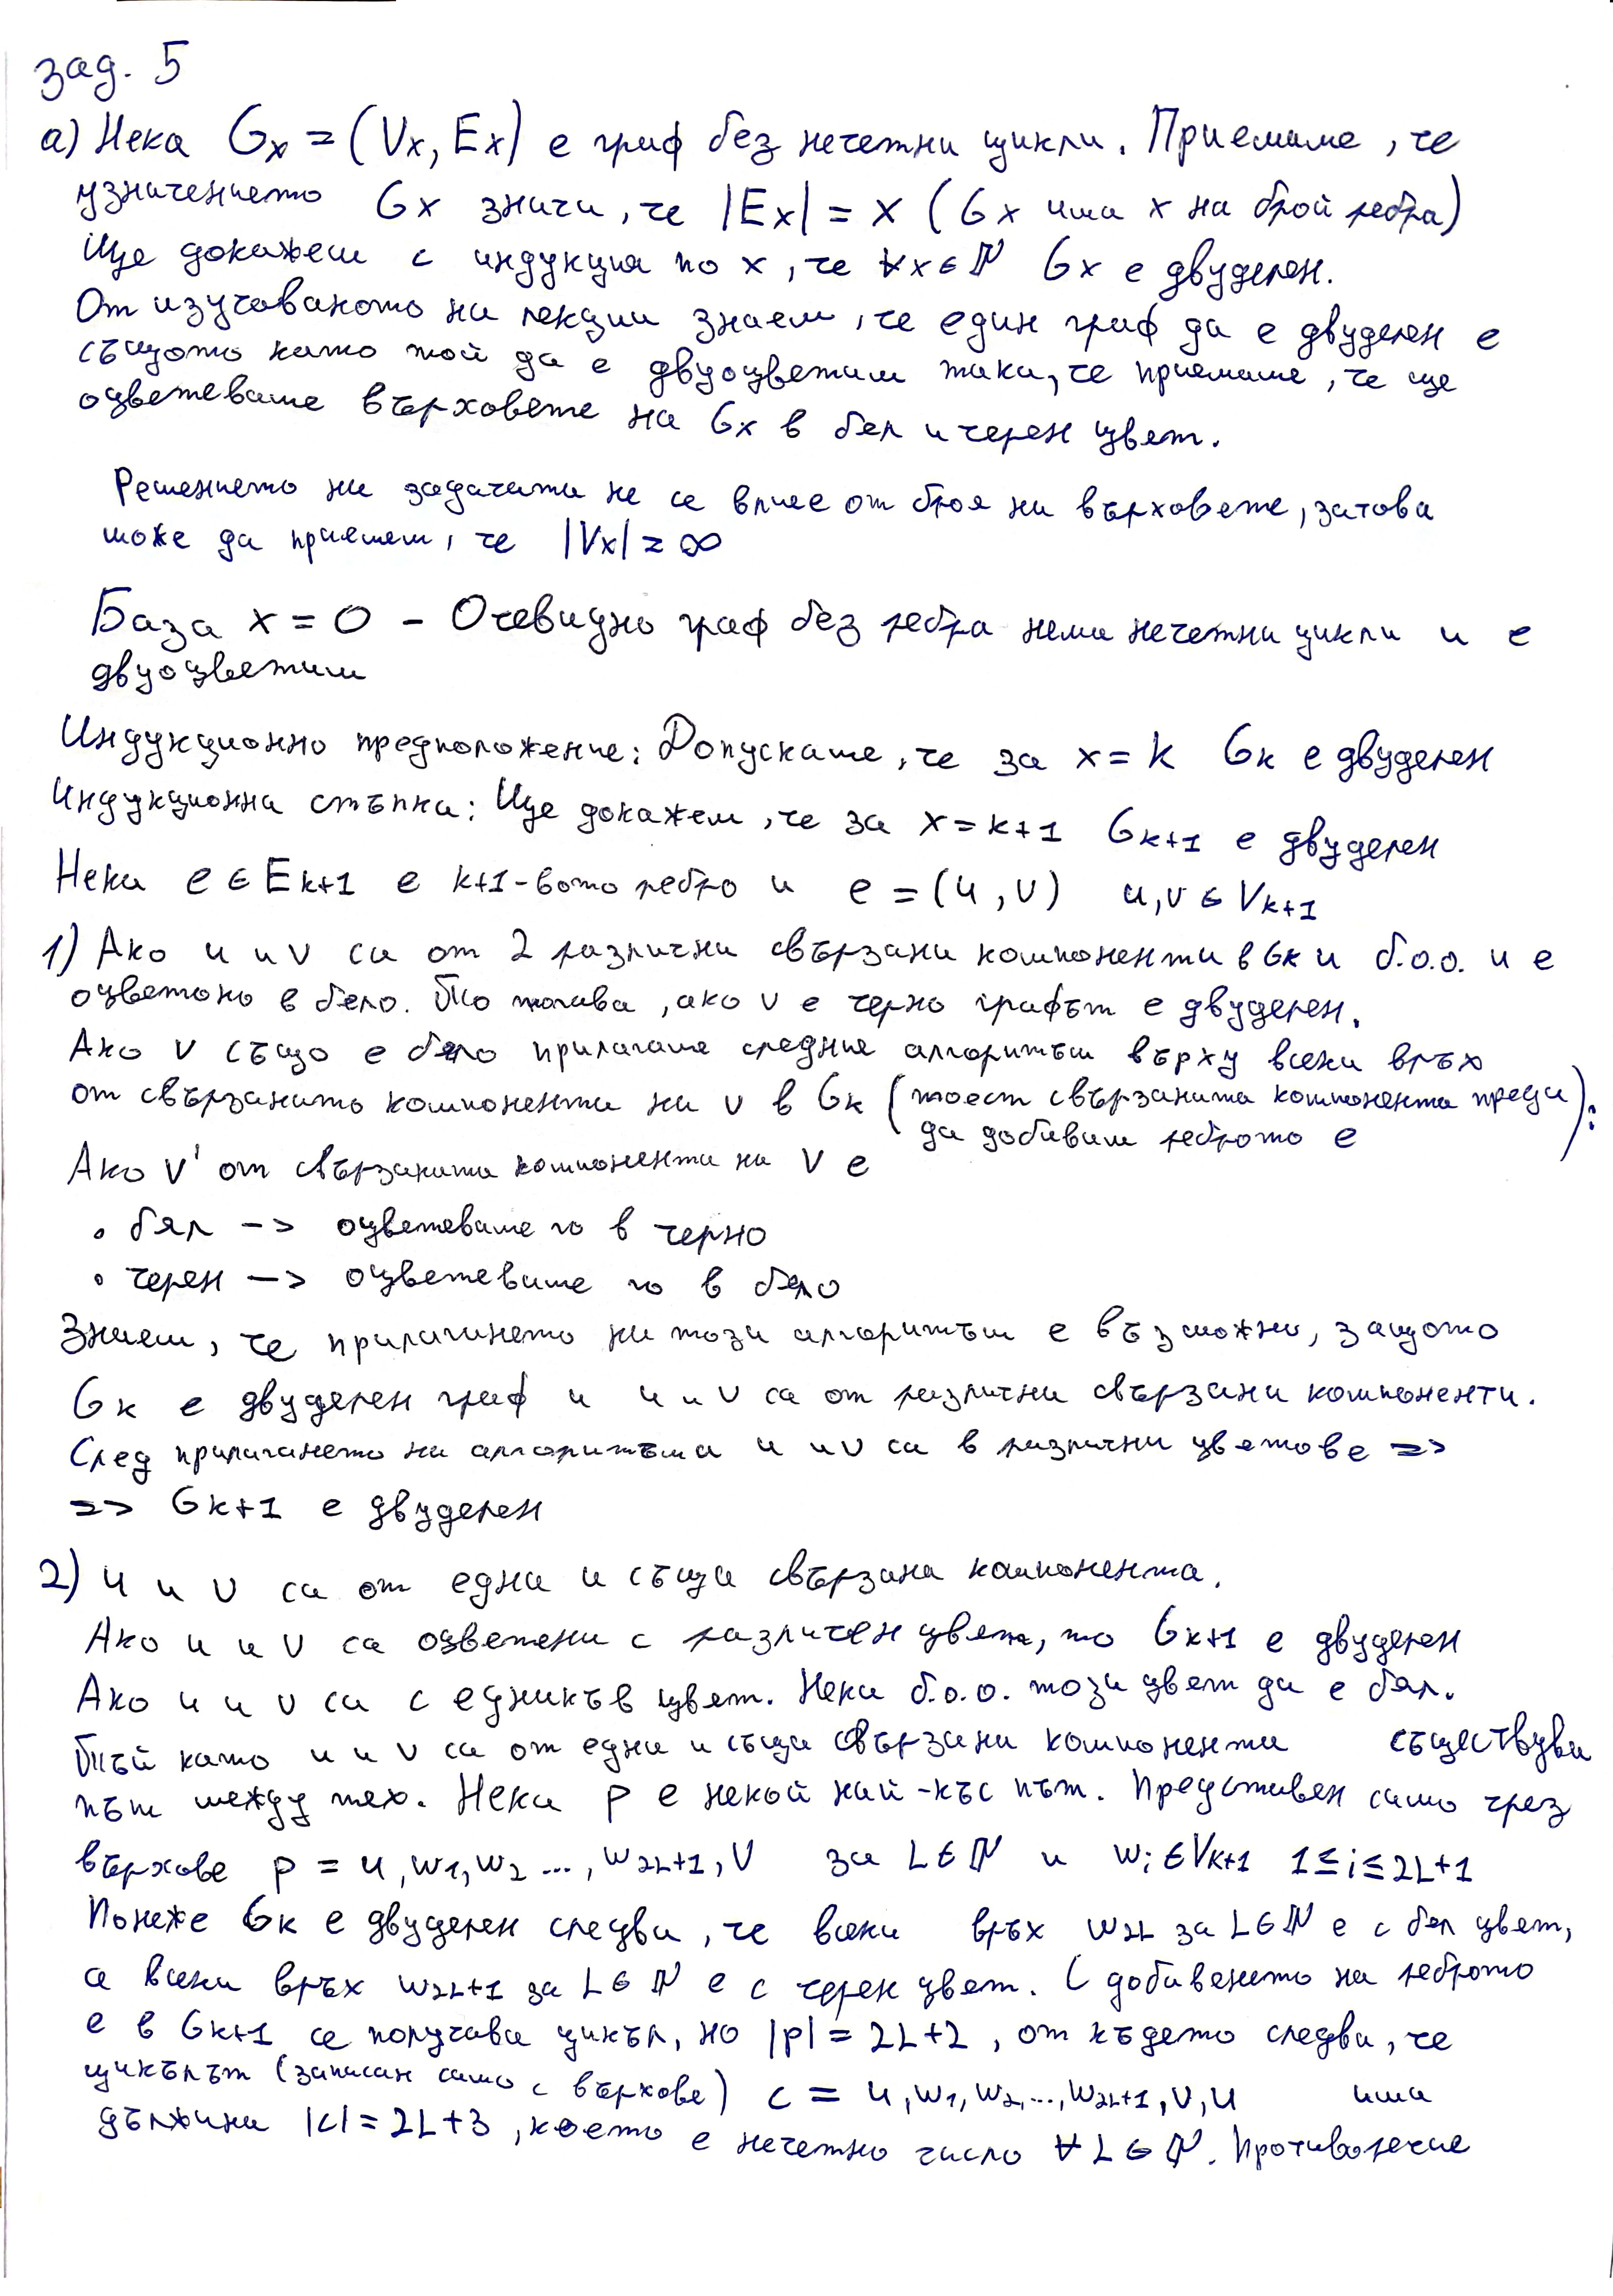 зад. 5
а) Нека Gx = (Vx, Ex) е граф без нечетни цикли. Приемаме, че
означението Gx значи, че |Ex| = x (Gx има x на брой ребра)
Ще докажем с индукция по x, че ∀x∈ℕ Gx е двуделен.
От изучаваното на лекции знаем, че един граф да е двуделен е
същото като той да е двуоцветим така, че приемаме, че ще
оцветяваме върховете на Gx в бял и черен цвят.
Решението на задачата не се влияе от броя на върховете, затова
може да приемем, че |Vx| = ∞
База x = 0 – Очевидно граф без ребра няма нечетни цикли и е
двуоцветим
Индукционно предположение: Допускаме, че за x = k Gk е двуделен
Индукционна стъпка: Ще докажем, че за x = k+1 Gk+1 е двуделен
Нека e ∈ Ek+1 е k+1-вото ребро и e = (u, v) u, v ∈ Vk+1
1) Ако u и v са от 2 различни свързани компоненти в Gk и б.о.о. u е
оцветено в бяло. То тогава, ако v е черно графът е двуделен.
Ако v също е бяло прилагаме следния алгоритъм върху всеки връх
от свързаната компонента на v в Gk (тоест свързаната компонента преди
да добавим реброто e):
Ако v' от свързаната компонента на v е
• бял –> оцветяваме го в черно
• черен –> оцветяваме го в бяло
Знаем, че прилагането на този алгоритъм е възможно, защото
Gk е двуделен граф и u и v са от различни свързани компоненти.
След прилагането на алгоритъма u и v са в различни цветове =>
=> Gk+1 е двуделен
2) u и v са от една и съща свързана компонента.
Ако u и v са оцветени с различен цвят, то Gk+1 е двуделен
Ако u и v са с еднакъв цвят. Нека б.о.о. този цвят да е бял.
Тъй като u и v са от една и съща свързана компонента съществува
път между тях. Нека p е някой най-къс път. Представен само чрез
върхове p = u, w1, w2 ..., w2L+1, v за L∈ℕ и wi ∈Vk+1 1≤i≤2L+1
Понеже Gk е двуделен следва, че всеки връх w2L за L∈ℕ е с бял цвят,
а всеки връх w2L+1 за L∈ℕ е с черен цвят. С добавянето на реброто
e в Gk+1 се получава цикъл, но |p| = 2L+2, от където следва, че
цикълът (записан само с върхове) c = u, w1, w2, ..., w2L+1, v, u има
дължина |c| = 2L+3, което е нечетно число ∀L∈ℕ. Противоречие